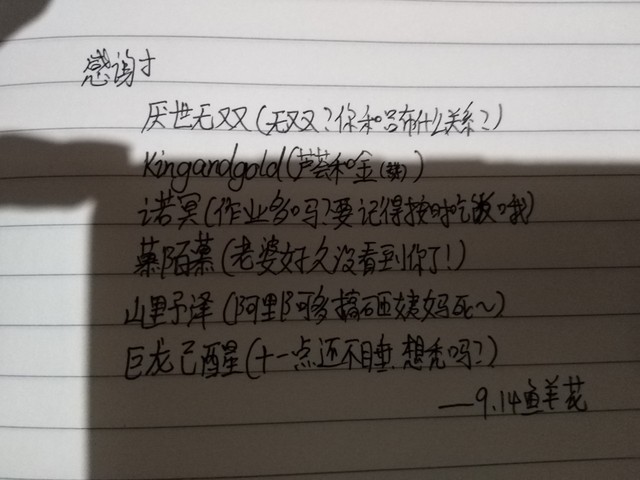 感谢
厌世无双(无双?你和吕布什么关系?)
Kingandgold(芦荟和金()
诺冥(作业多吗?要记得按时吃饭哦)
陌(老婆好久没看到你了!)
山里予泽(阿里阿多搞砸姨妈死~)
巨龙已醒(十一点还不睡.想秃吗?)
—9.14鲜花